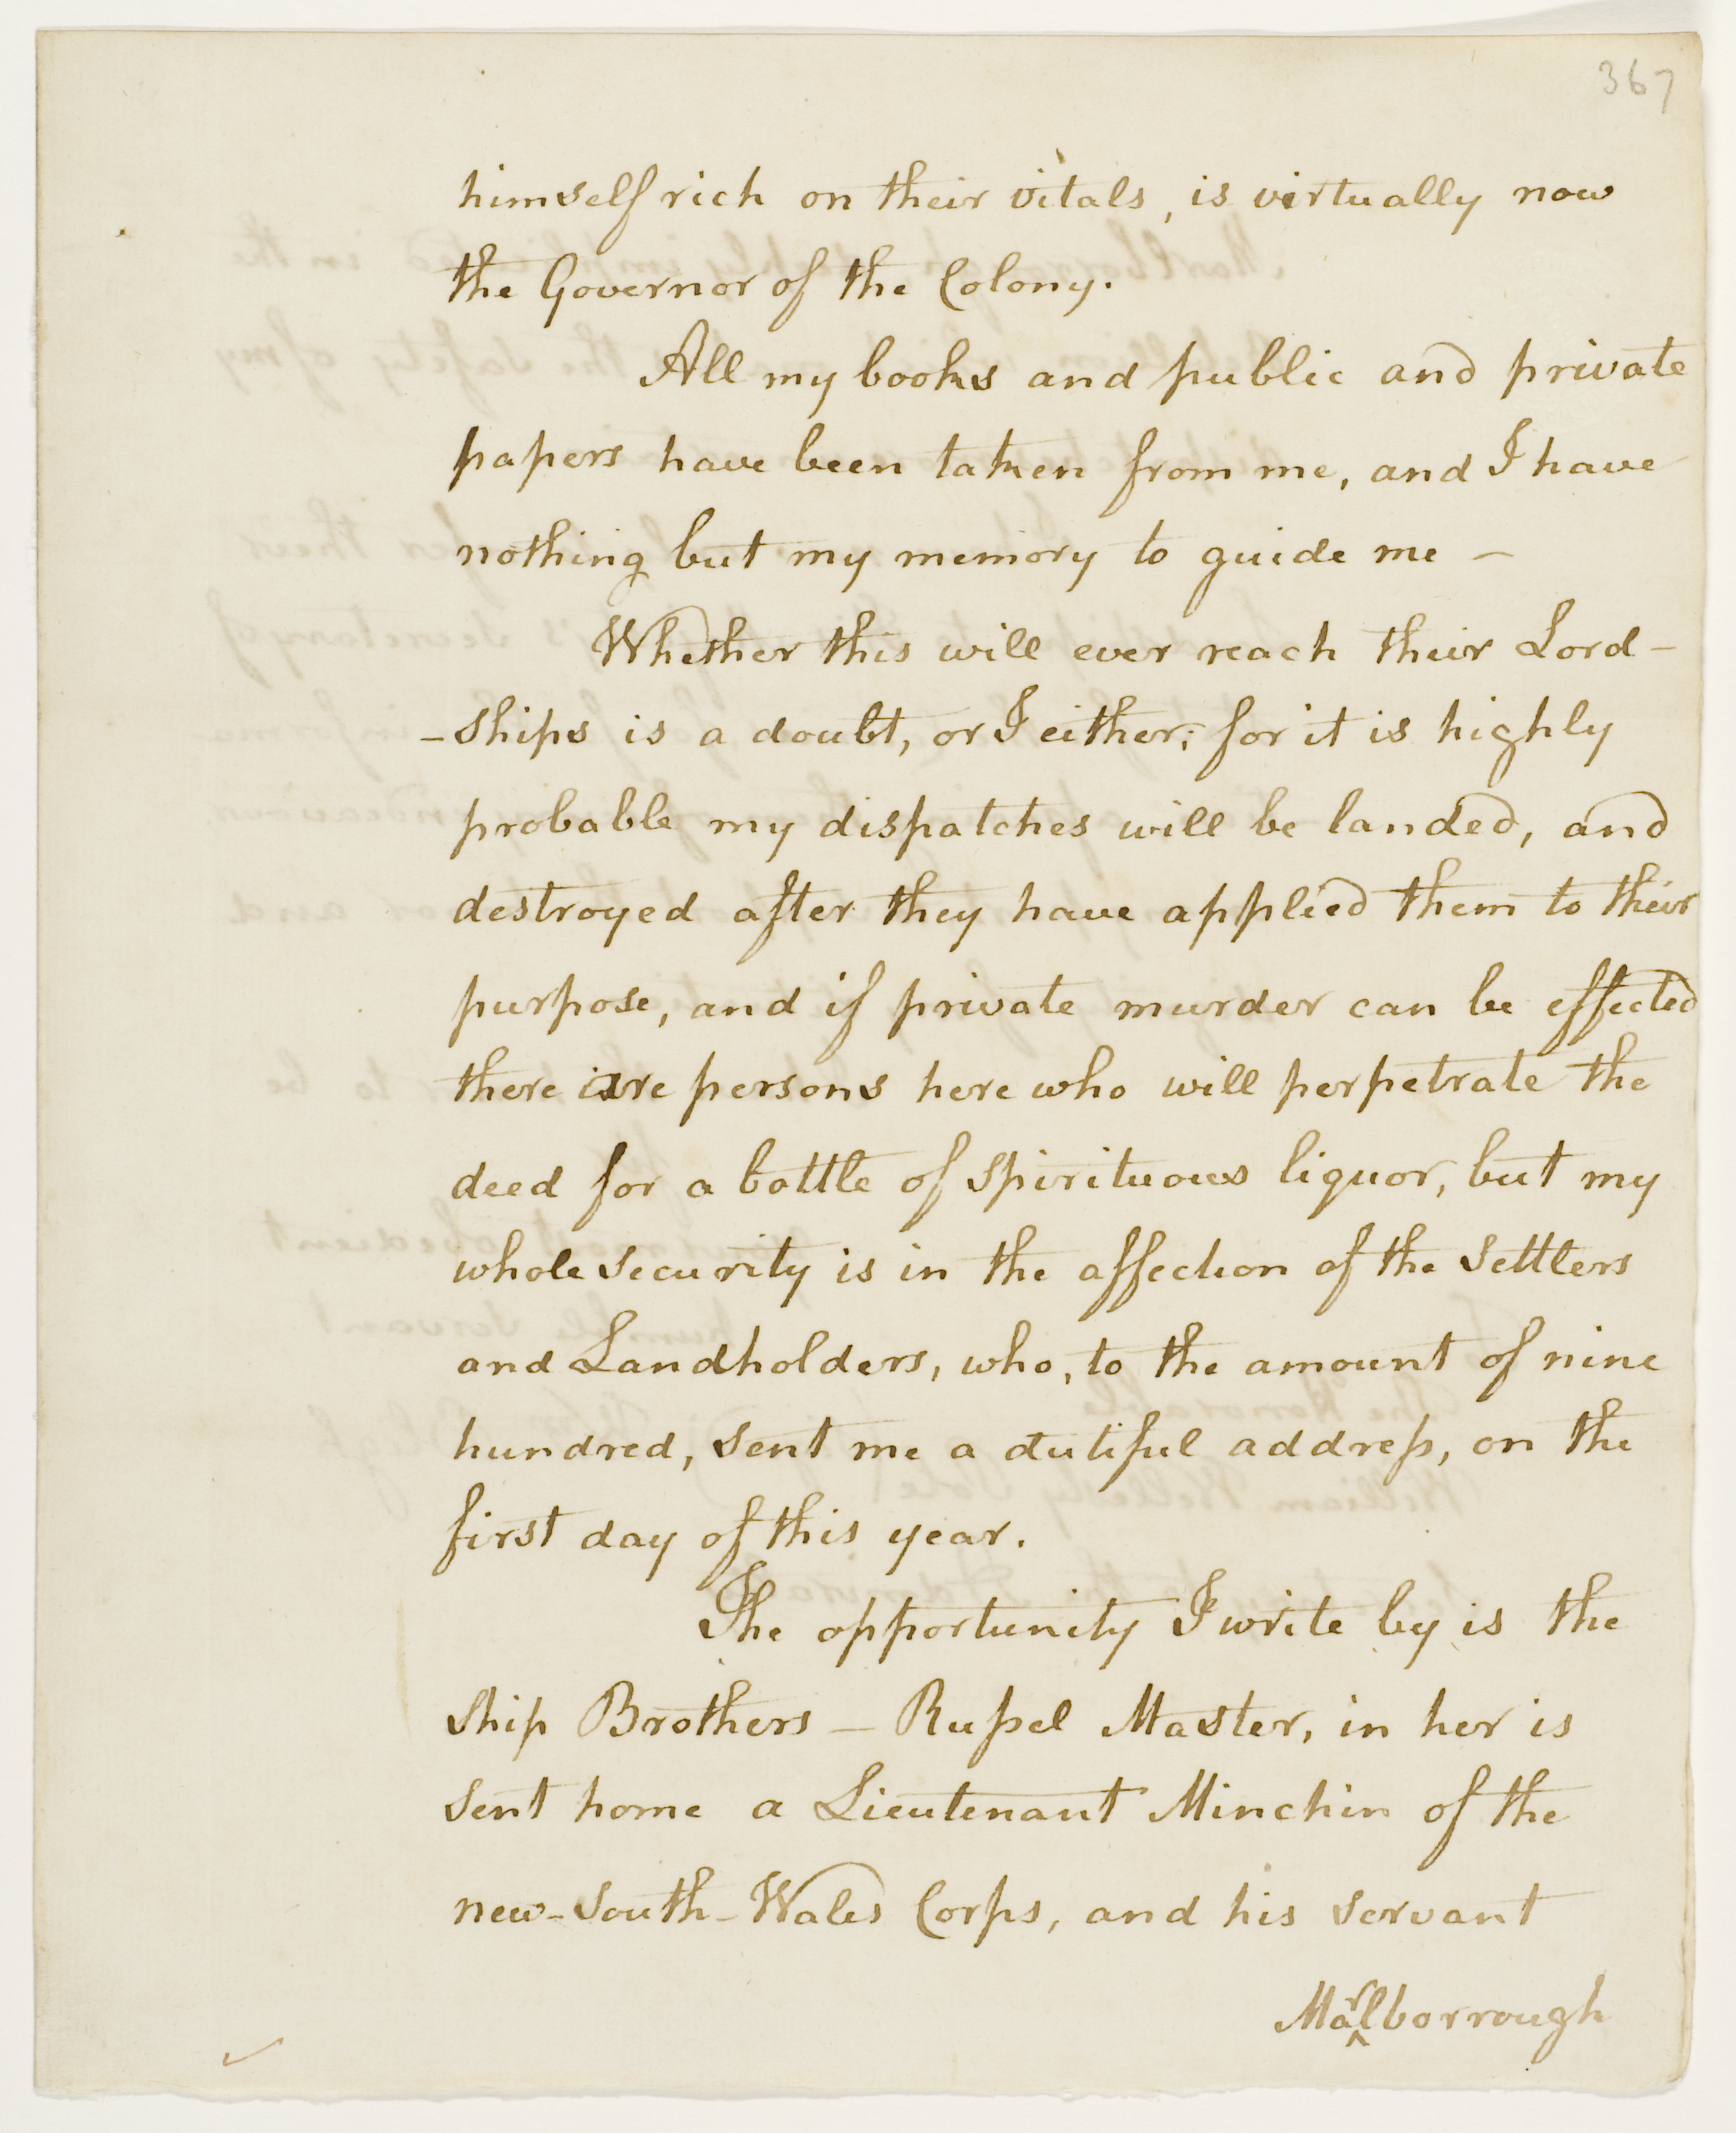 367
himself rich on their vitals, is virtually now
the Governor of the Colony.
All my books and public and private
papers have been taken from me, and I have
nothing but my memory to guide me —
Whether this will ever reach their Lord-
-ships is a doubt, or I either; for it is highly
probable my dispatches will be landed, and
destroyed after they have applied them to their
purpose, and if private murder can be effected
there are persons here who will perpetrate the
deed for a bottle of spirituous liquor, but my
whole security is in the affection of the Settlers
and Landholders, who, to the amount of nine
hundred, sent me a dutiful addreſs, on the
first day of this year.
The opportunity I write by is the
Ship Brothers — Ruſsel Master, in her is
sent home a Lieutenant Minchin of the
new-South-Wales Corps, and his servant
Marlborrough